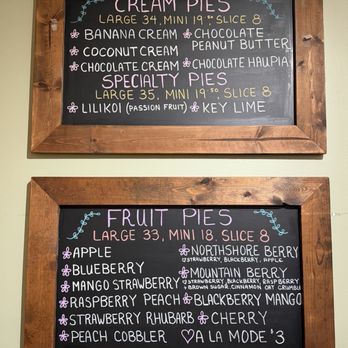 CREAM PIES
LARGE 34, MINI 19.50 SLICE 8
BANANA CREAM
COCONUT CREAM
CHOCOLATE CREAM
CHOCOLATE
PEANUT BUTTER
CHOCOLATE HAUPIA
SPECIALTY PIES
LARGE 35, MINI 19.50, SLICE 8
LILIKOI (PASSION FRUIT)
KEY LIME
FRUIT PIES
LARGE 33, MINI 18, SLICE 8
APPLE
BLUEBERRY
MANGO STRAWBERRY
RASPBERRY PEACH
STRAWBERRY RHUBARB
PEACH COBBLER
NORTHSHORE BERRY
STRAWBERRY, BLACKBERRY, APPLE
MOUNTAIN BERRY
STRAWBERRY, BLACKBERRY, RASPBERRY
BROWN SUGAR, CINNAMON OAT CRUMBLE
BLACKBERRY MANGO
CHERRY
A LA MODE $3